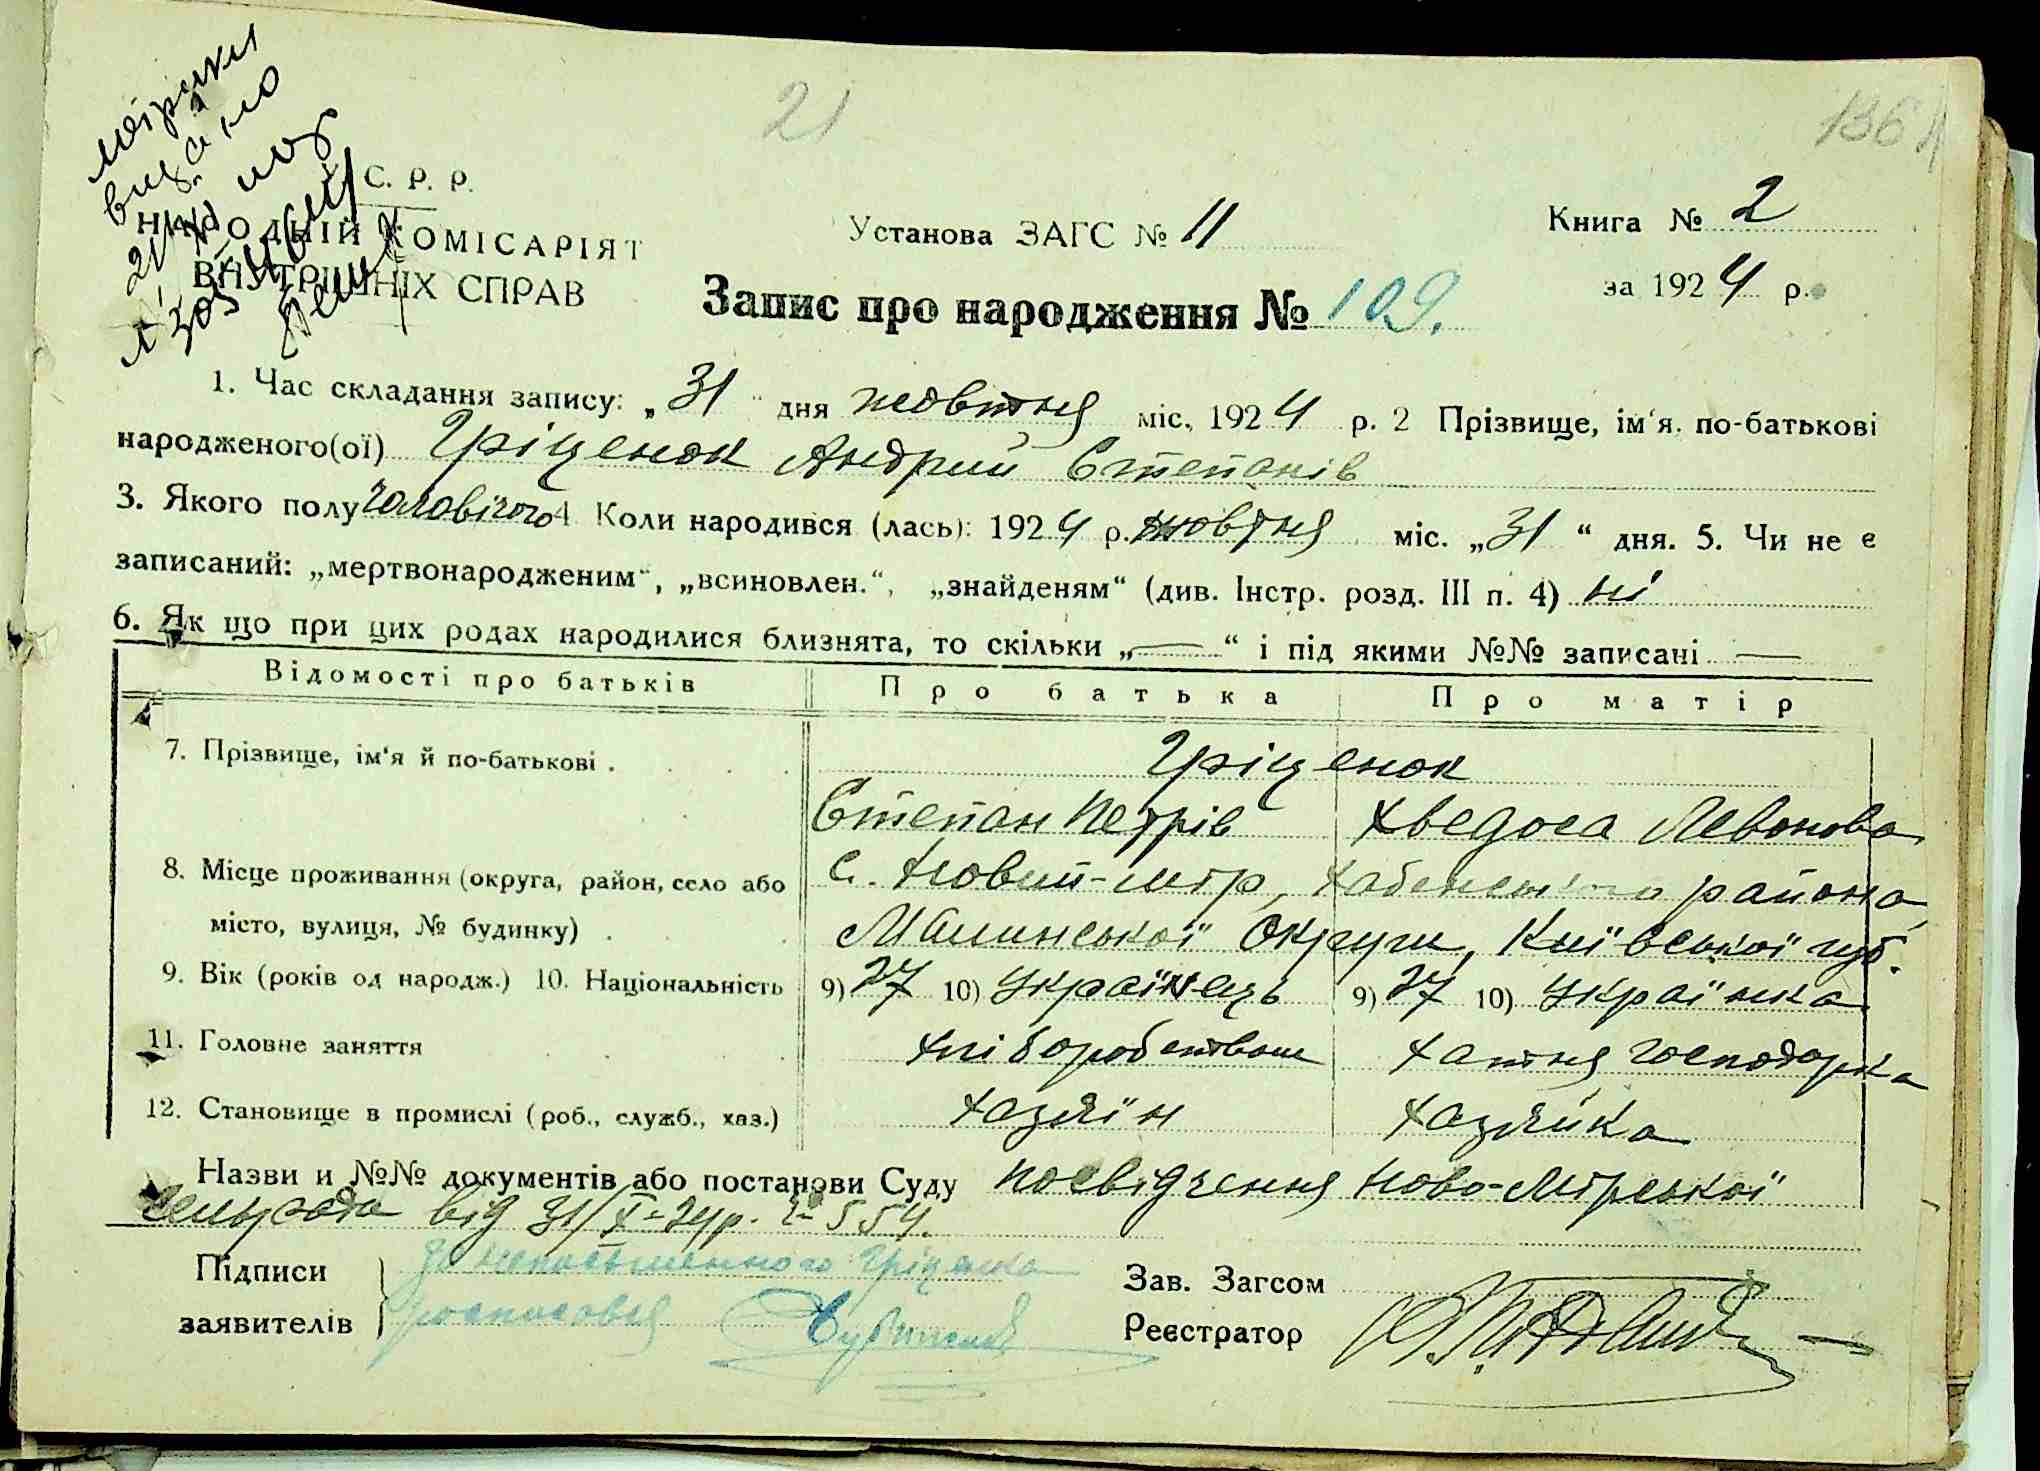 21
136
С. Р. Р.
НАРОДНІЙ КОМІСАРІЯТ
ВНУТРІШНІХ СПРАВ
Установа ЗАГС № 11
Книга № 2
за 1924 р.
Запис про народження № 109.
1. Час складання запису: „31" дня жовтня міс. 1924 р. 2 Прізвище, ім'я. по-батькові
народженого(ої) Гріценок Андрий Степанів
3. Якого полу чоловічого 4 Коли народився (лась): 1924 р. жовтня міс. „31" дня. 5. Чи не є
записаний: „мертвонародженим", „всиновлен.", „знайденям" (див. Інстр. розд. III п. 4) ні
6. Як що при цих родах народилися близнята, то скільки „—" і під якими №№ записані —
Відомості про батьків Про батька Про матір
7. Прізвище, ім'я й по-батькові . Гріценок
Степан Петрів Хведоса Левонова
8. Місце проживання (округа, район, село або с. Новий-мір, Хабенського района,
місто, вулиця, № будинку) . Малинської Округи, Київської губ.
9. Вік (років од народж.) 10. Національність 9) 27 10) Українець 9) 27 10) Українка
11. Головне заняття хліборобство хатня господарка
12. Становище в промислі (роб., служб., хаз.) хазяїн хазяйка
Назви и №№ документів або постанови Суду посвідчення Ново-Мірської
сельрада від 31/X-24р. № 554.
Підписи за неписьменного Гріценка
заявителів росписовся
Зав. Загсом
Реєстратор